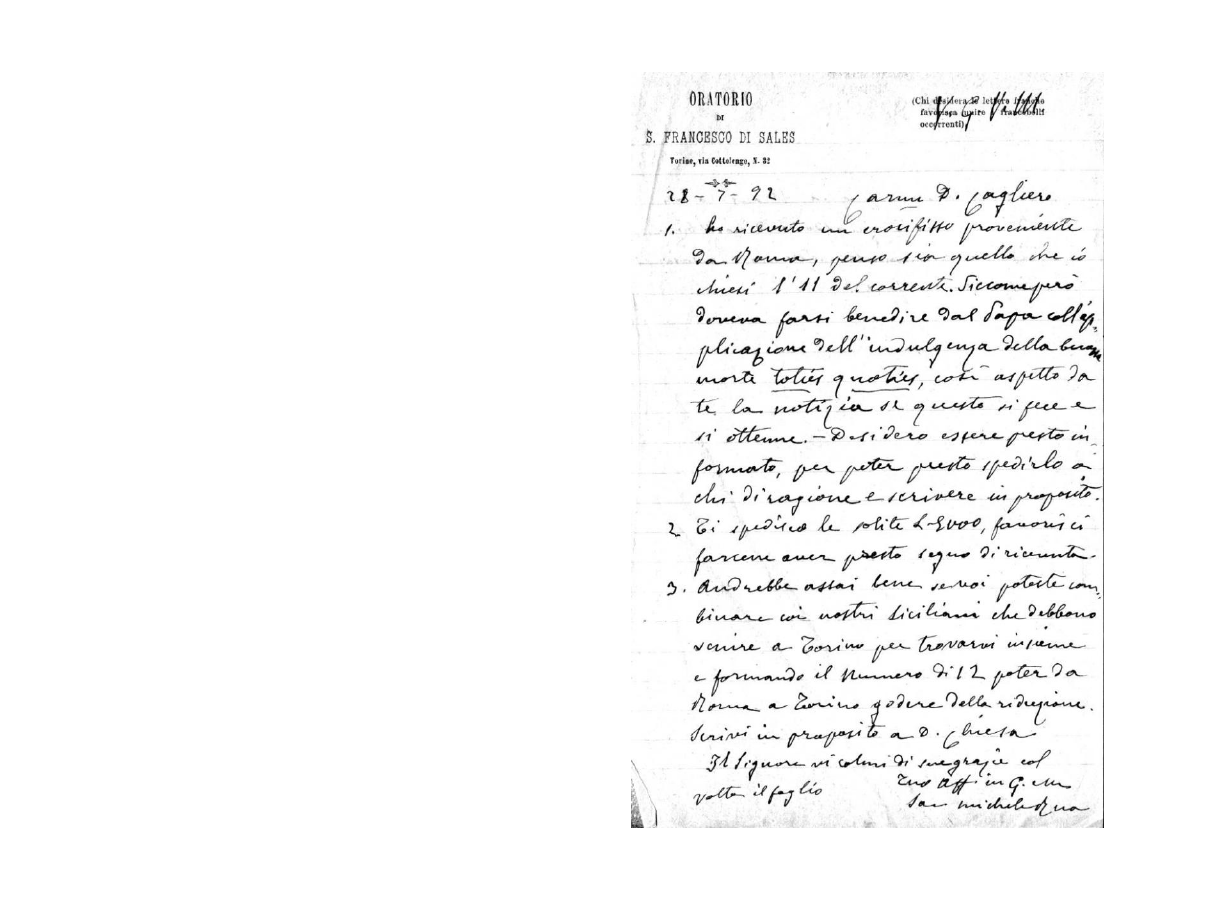 ORATORIO
DI
S. FRANCESCO DI SALES
Torino, via Cottolengo, N. 32
(Chi desidera le lettere franche
favorisca unire i francobolli
occorrenti)
28-7-92 Carmo D. Cagliero
1. ho ricevuto un crocifisso proveniente
da Roma, penso sia quello che io
chiesi l'11 del corrente. Siccome però
doveva farsi benedire dal Papa coll'ap-
plicazione dell'indulgenza della buona
morte toties quoties, così aspetto da
te la notizia se questo si fece e
si ottenne. - Desidero essere presto in-
formato, per poter presto spedirlo a
chi di ragione e scrivere in proposito.
2. Ti spedisco le solite L, favorisci
farcene aver presto segno di ricevuta.
3. Andrebbe assai bene se voi poteste com-
binare coi nostri Siciliani che debbono
venire a Torino per trovarvi insieme
e formando il Numero di 12 poter da
Roma a Torino godere della riduzione.
Scrivi in proposito a D. Chiesa
Il Signore vi colmi di sue grazie col
volta il foglio Tuo Aff in G. e M
Sac Michele Rua